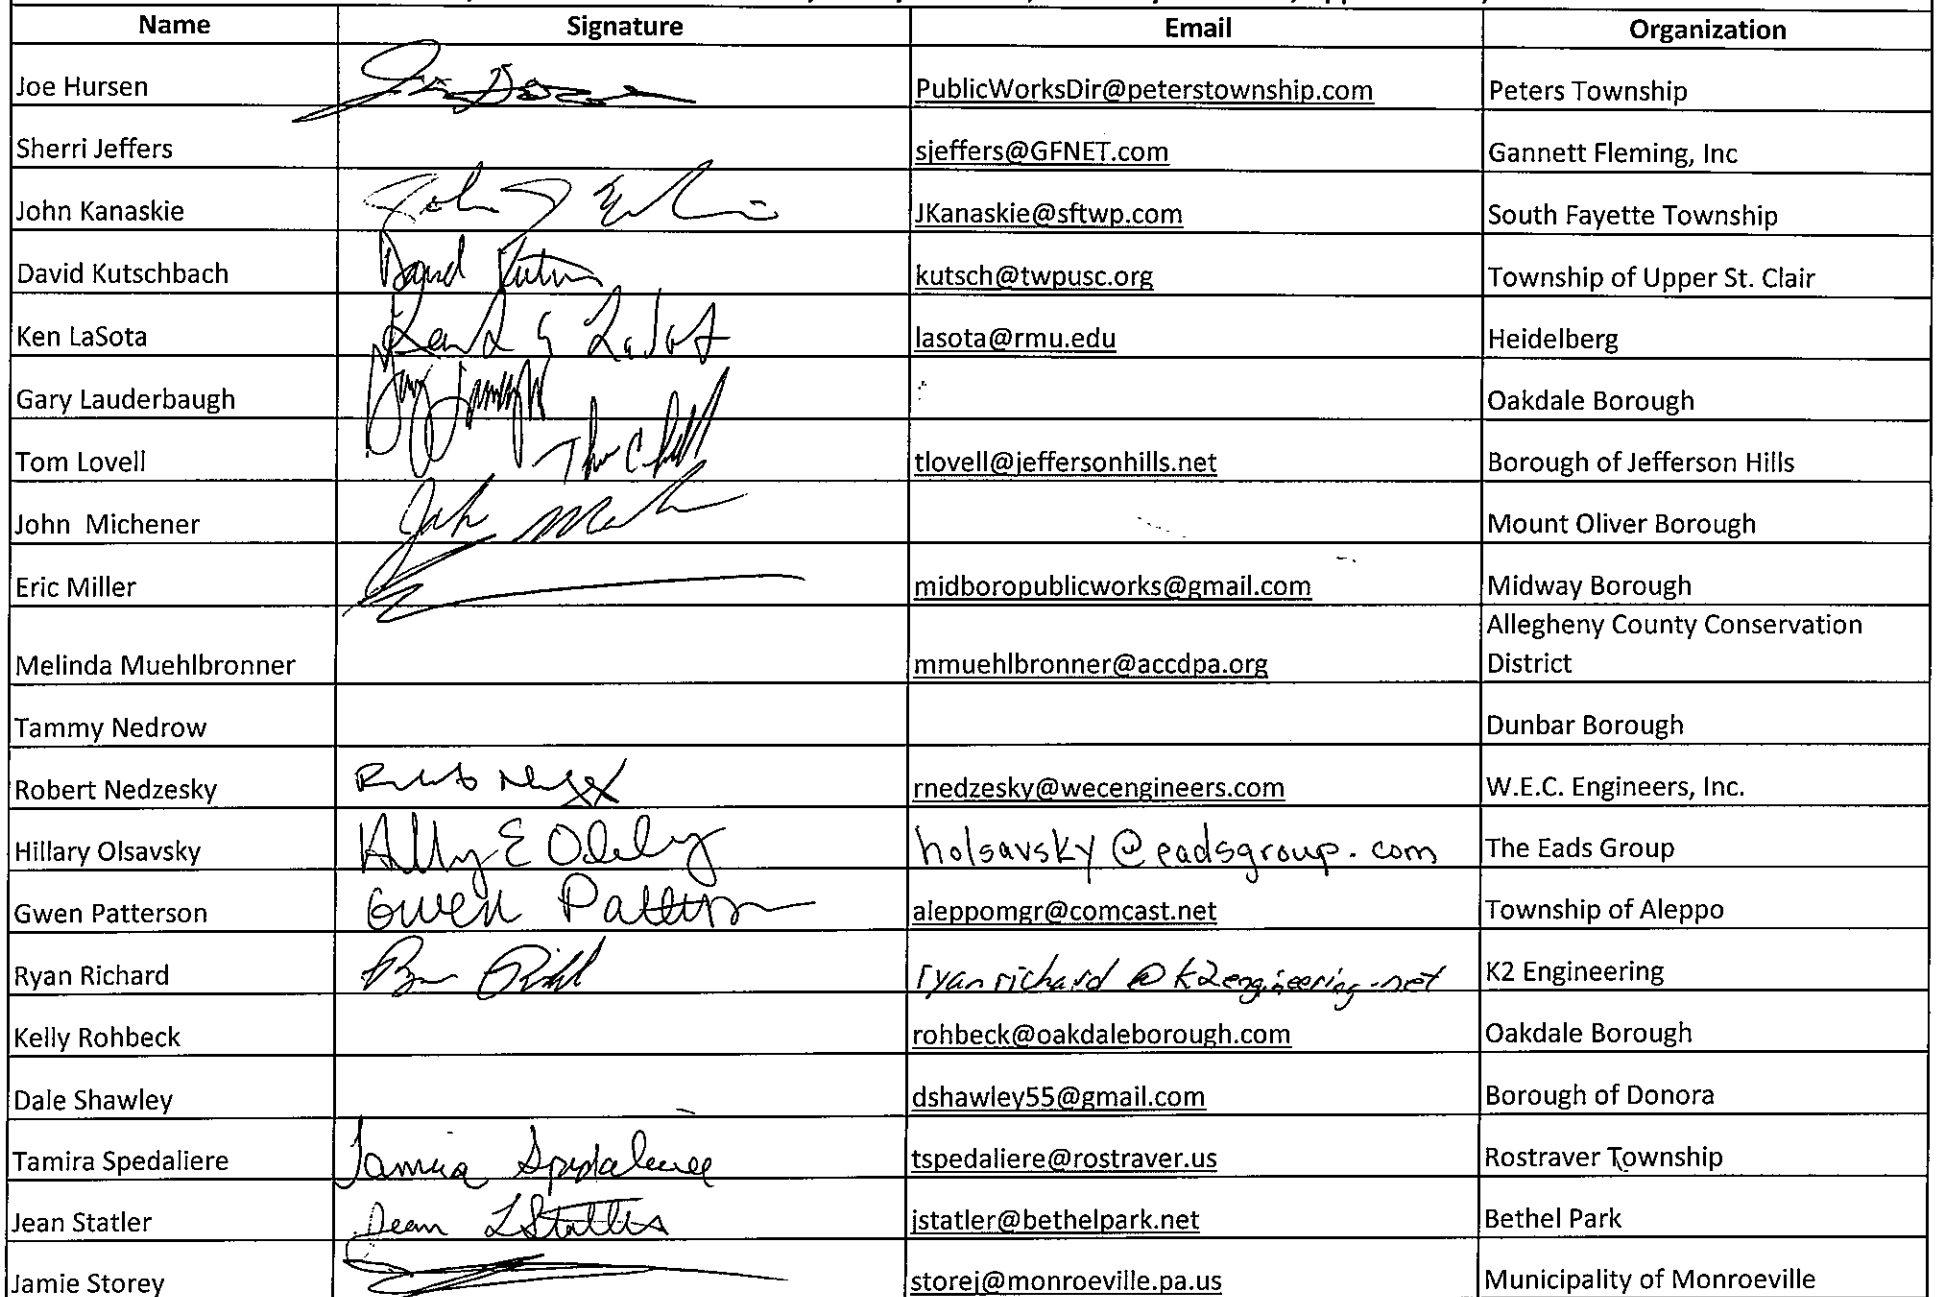 Name Signature Email Organization
Joe Hursen PublicWorksDir@peterstownship.com Peters Township
Sherri Jeffers sjeffers@GFNET.com Gannett Fleming, Inc
John Kanaskie John J JKanaskie@sftwp.com South Fayette Township
David Kutschbach David kutsch@twpusc.org Township of Upper St. Clair
Ken LaSota lasota@rmu.edu Heidelberg
Gary Lauderbaugh Gary Oakdale Borough
Tom Lovell tlovell@jeffersonhills.net Borough of Jefferson Hills
John Michener John Mount Oliver Borough
Eric Miller midboropublicworks@gmail.com Midway Borough
Melinda Muehlbronner mmuehlbronner@accdpa.org Allegheny County Conservation
District
Tammy Nedrow Dunbar Borough
Robert Nedzesky rnedzesky@wecengineers.com W.E.C. Engineers, Inc.
Hillary Olsavsky holsavsky@eadsgroup.com The Eads Group
Gwen Patterson Gwen Patterson aleppomgr@comcast.net Township of Aleppo
Ryan Richard ryanrichard@k2engineering.net K2 Engineering
Kelly Rohbeck rohbeck@oakdaleborough.com Oakdale Borough
Dale Shawley dshawley55@gmail.com Borough of Donora
Tamira Spedaliere Tamira Spedaliere tspedaliere@rostraver.us Rostraver Township
Jean Statler Jean L Statler jstatler@bethelpark.net Bethel Park
Jamie Storey storej@monroeville.pa.us Municipality of Monroeville